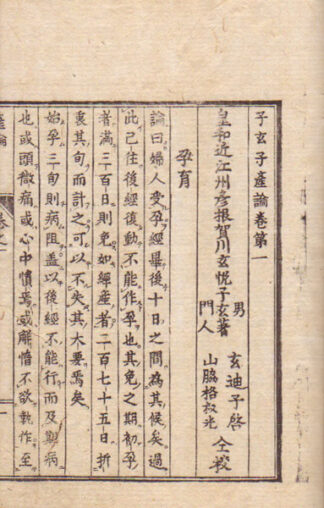 子玄子產論卷第一
皇和近江州彥根賀川玄悅子玄著
男 玄迪子啓
門人 山脇格叔光 仝校
孕育
論曰婦人受孕經畢後十日之間為其候矣過
此已往後經復動不能作孕也其免之期初孕
者滿三百日則免如經產者二百七十五日折
衷其旬而計之可以不失其大要焉矣
始孕三旬則病阻蓋以後經不能行而及期病
也或頭微痛或心中憒焉或懈惰不欲執作至
產論
卷之一